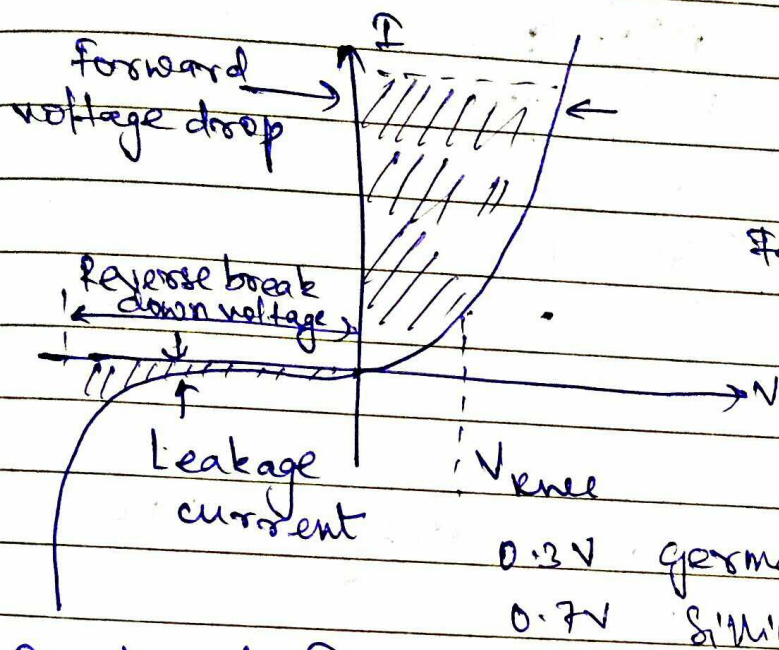 I
Forward
voltage drop
Reverse break
down voltage
V
Leakage
current
V knee
0.3V germ
0.7V Silli